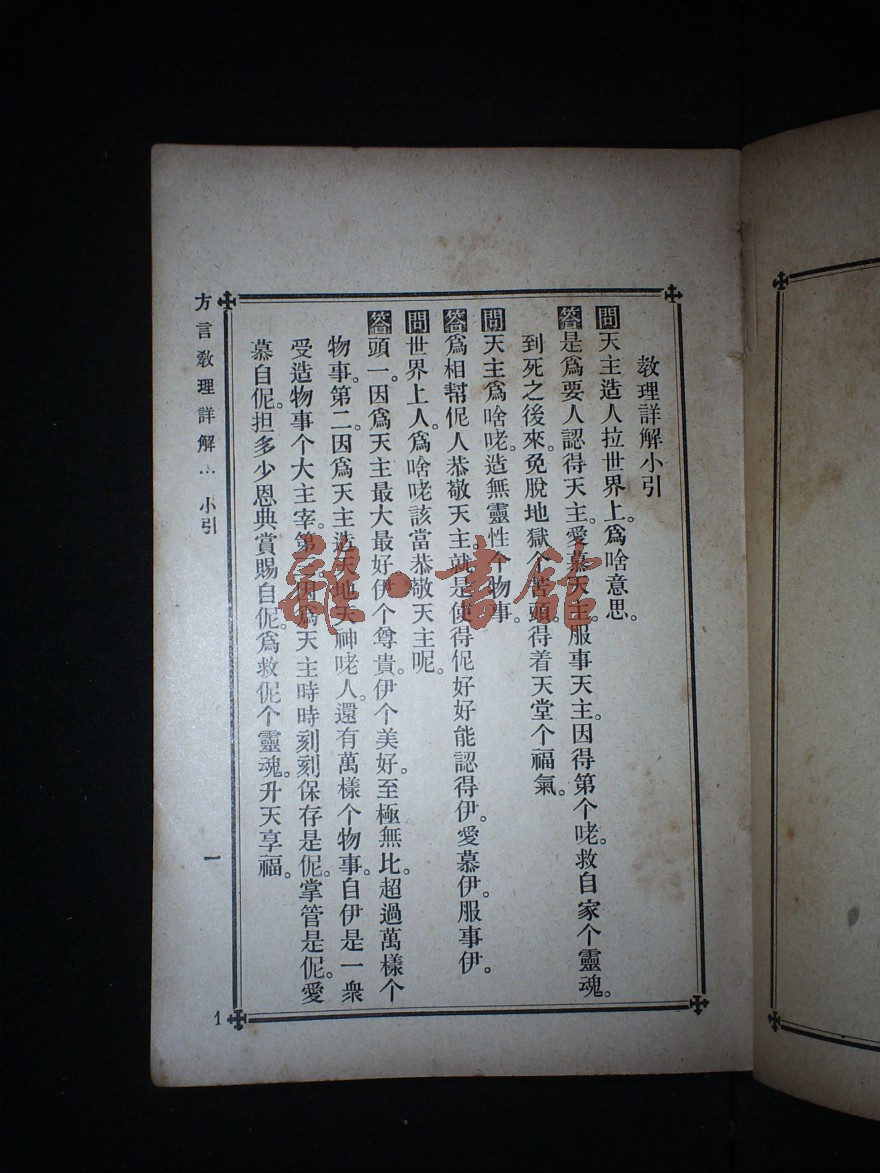 教理詳解小引
問天主造人拉世界上。爲啥意思。
答是爲要人認得天主。愛慕天主。服事天主。因得第个咾。救自家个靈魂。
到死之後來。免脫地獄个苦頭。得着天堂个福氣。
問天主爲啥咾。造無靈性个物事。
答爲相幫伲人恭敬天主。就是使得伲好好能認得伊。愛慕伊。服事伊。
問世界上人。爲啥咾該當恭敬天主呢。
答頭一。因爲天主最大最好。伊个尊貴。伊个美好。至極無比。超過萬樣个
物事。第二。因爲天主造天地天神咾人。還有萬樣个物事。自伊是一衆
受造物事个大主宰。第三。因爲天主時時刻刻保存是伲。掌管是伲。愛
慕自伲。担多少恩典賞賜自伲。爲救伲个靈魂。升天享福。
方言教理詳解 小引
一
1
龍·書館